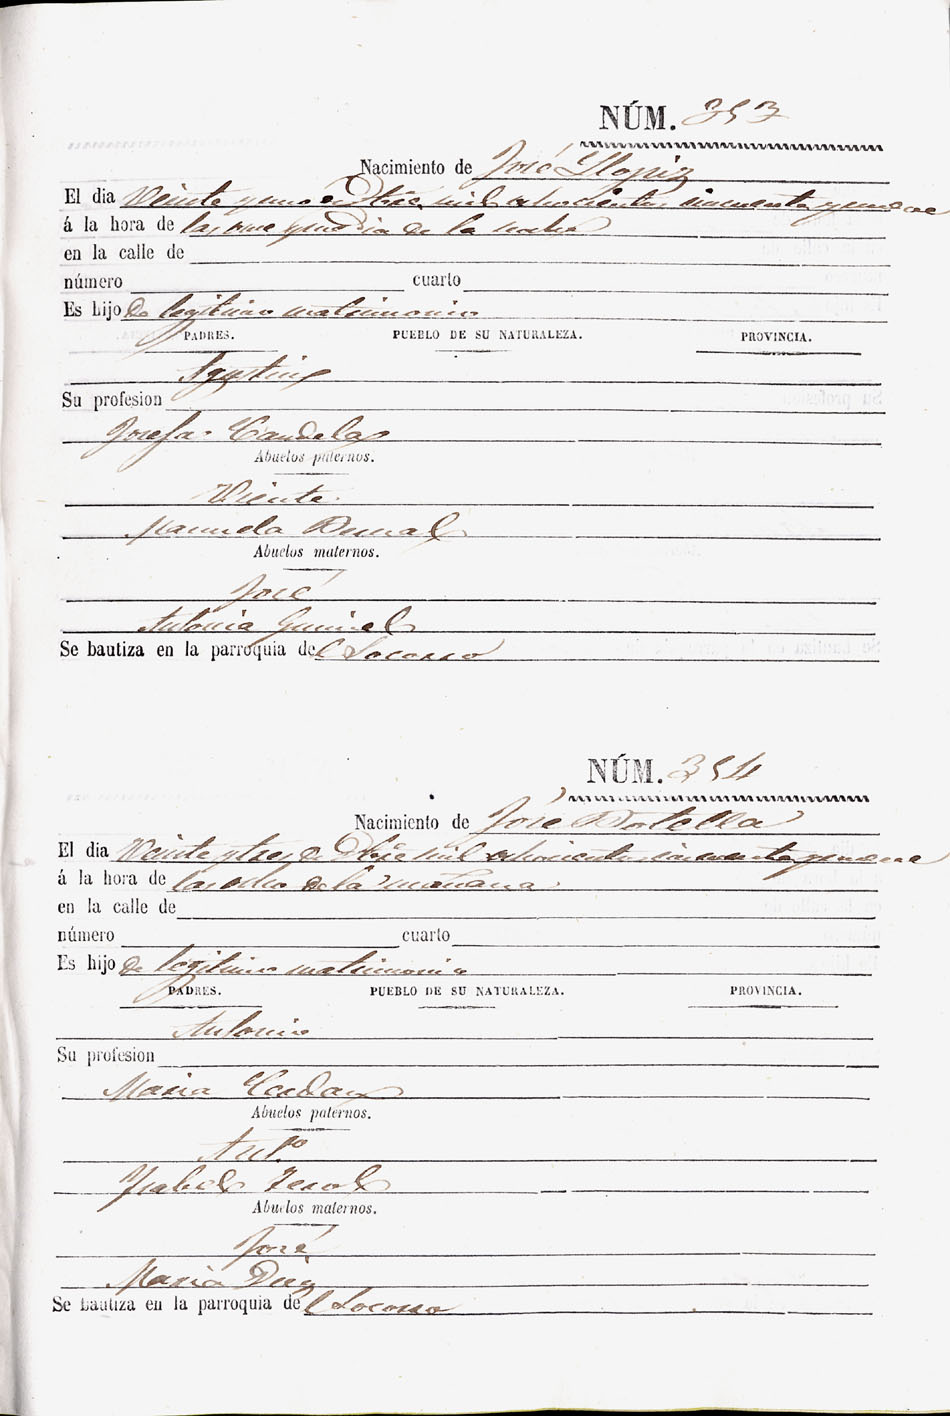 NÚM. 353
Nacimiento de José Llopiz
El dia Veinte y uno de Dbre mil ochocientos cincuenta y nueve
á la hora de las once y media de la noche
en la calle de
número cuarto
Es hijo de legitimo matrimonio
PADRES. PUEBLO DE SU NATURALEZA. PROVINCIA.
Agustin
Su profesion
Josefa Candela
Abuelos paternos.
Vicente
Manuela
Abuelos maternos.
José
Antonia
Se bautiza en la parroquia del Socorro
NÚM. 354
Nacimiento de José Botella
El dia Veinte y tres de Dbre mil ochocientos cincuenta y nueve
á la hora de las ocho de la mañana
en la calle de
número cuarto
Es hijo de legitimo matrimonio
PADRES. PUEBLO DE SU NATURALEZA. PROVINCIA.
Antonio
Su profesion
Maria Cerdan
Abuelos paternos.
Anto
Ysabel Terol
Abuelos maternos.
José
Maria Diez
Se bautiza en la parroquia del Socorro